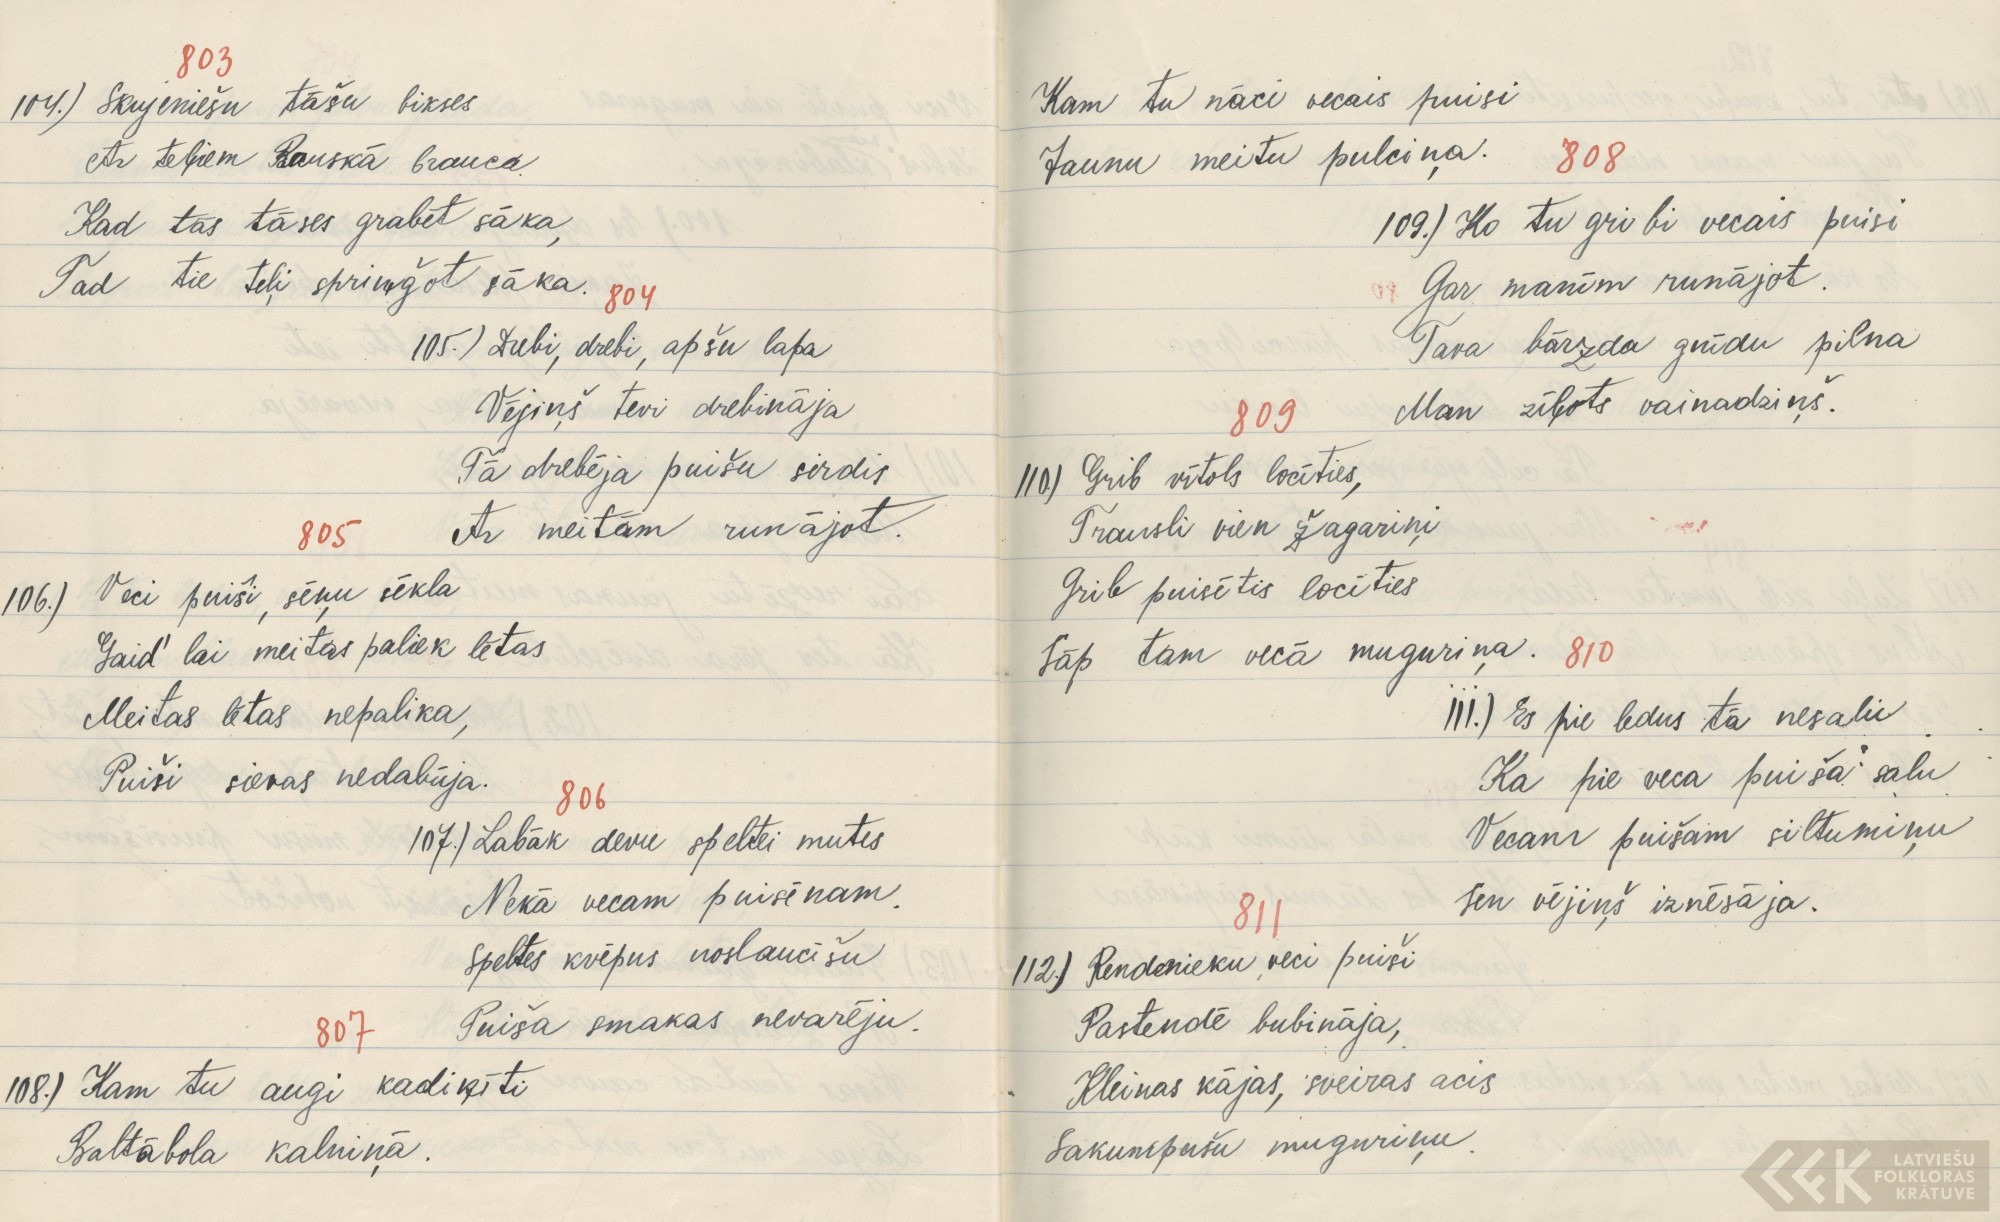 803
104.) Skujeniešu tāšu bikses
Ar teļiem Rauskā brauca.
Kad tās tāses grabēt sāka,
Tad tie teļi spriņģot sāka.
804
105.) Drebi, drebi, apšu lapa
Vējiņš tevi drebināja
Tā drebēja puišu sirdis
Ar meitām runājot.
805
106.) Veci puiši, sēņu sēkla
Gaid' lai meitas paliek lētas
Meitas lētas nepalika,
Puiši sievas nedabūja.
806
107.) Labāk devu speltei mutes
Nekā vecam puisēnam.
Speltes kvēpus noslaucīšu
Puiša smakas nevarēju.
807
108.) Kam tu augi kadiķīti
Baltābola kalniņā.
Kam tu nāci vecais puisi
Jaunu meitu pulciņa.
808
109.) Ko tu gribi vecais puisi
Gar manīm runājot.
Tava bārzda gnīdu pilna
Man zīļots vainadziņš.
809
110.) Grib vītols locīties,
Trausli vien žagariņi
Grib puisētis locīties
Sāp tam vecā muguriņa.
810
111.) Es pie ledus tā nesalu
Ka pie veca puiša salu
Vecam puišam siltumiņu
Sen vējiņš iznēsāja.
811
112.) Rendenieku veci puiši
Pastendē bubināja,
Kleinas kājas, sveiras acis
Sakumpušu muguriņu.
LATVIEŠU
FOLKLORAS
KRĀTUVE